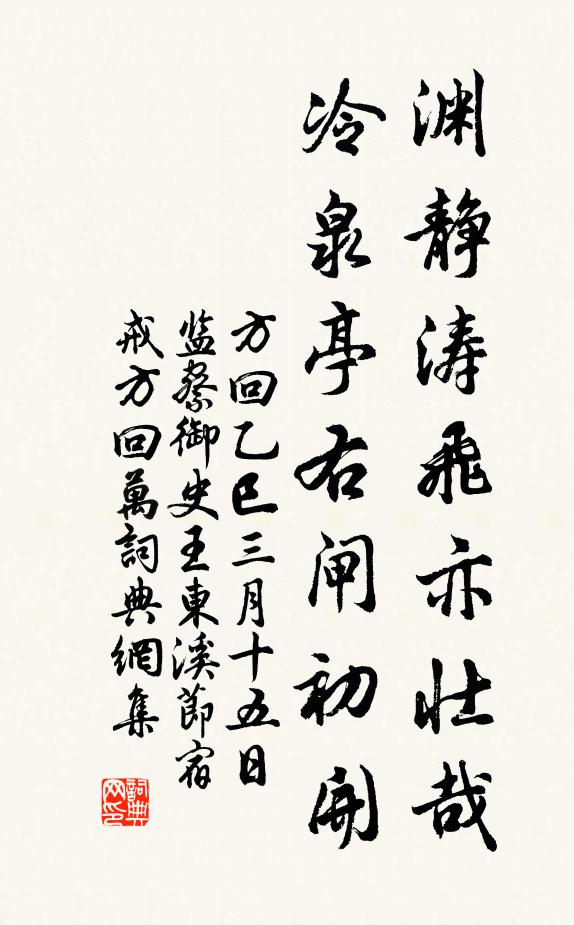 渊静涛飛亦壮哉
冷泉亭右闸初開
方回乙巳三月十五日
监察御史王東溪節宿
戒方回萬詞典網集
詞典
网印